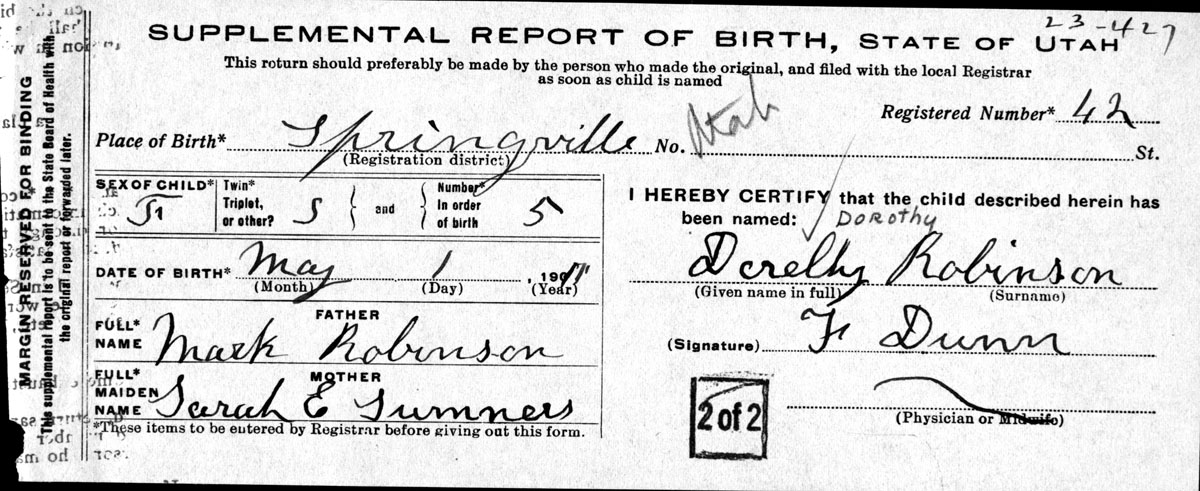 23-427
SUPPLEMENTAL REPORT OF BIRTH, STATE OF UTAH
This return should preferably be made by the person who made the original, and filed with the local Registrar
as soon as child is named
Registered Number* 42
Place of Birth* Springville No. Utah St.
(Registration district)
SEX OF CHILD* F
Twin* Triplet, or other? S } and { Number* In order of birth 5
DATE OF BIRTH* May 1, 191
(Month) (Day) (Year)
FATHER
FULL* NAME Mark Robinson
MOTHER
FULL* MAIDEN NAME Sarah E Sumners
*These items to be entered by Registrar before giving out this form.
I HEREBY CERTIFY that the child described herein has
been named: DOROTHY
Dorelhy Robinson
(Given name in full) (Surname)
(Signature) F Dunn
(Physician or Midwife)
2 of 2
MARGIN RESERVED FOR BINDING
This supplemental report is to be sent to the State Board of Health with
the original report or forwarded later.